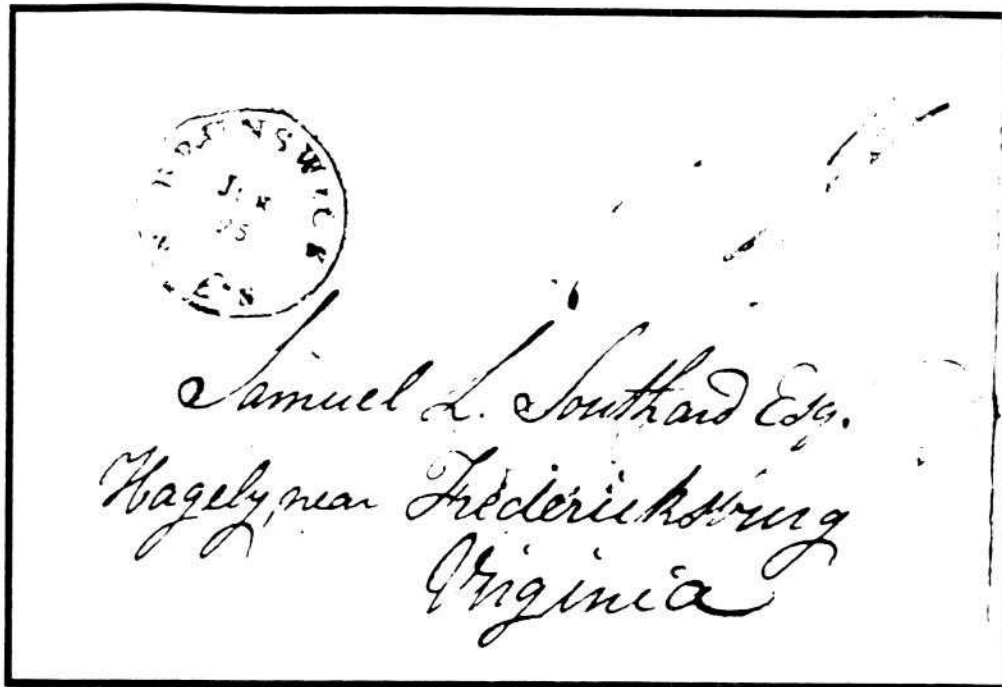 BRUNSWICK
JAN
Samuel L. Southard Esq.
Hagely, near Fredericksburg
Virginia